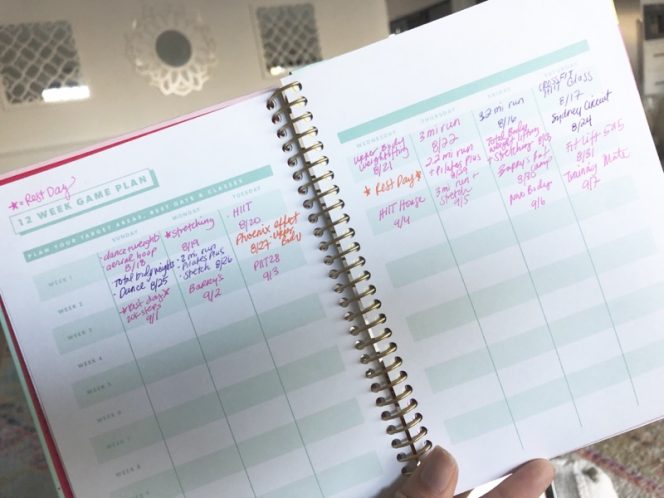 * = Rest Day
12 WEEK GAME PLAN
PLAN YOUR TARGET AREAS, REST DAYS & CLASSES
SUNDAY
MONDAY
TUESDAY
WEDNESDAY
THURSDAY
FRIDAY
WEEK 1
dance weight/
aerial hoop
8/18
*stretching
8/19
HIIT
8/20
upper body
weightlifting
8/21
3 mi run
8/22
3.2 mi run
8/16
HIIT Class
8/17
WEEK 2
Total body weights
- Dance 8/25
- 2 mi run
- Pilates Plus
- Stretch 8/26
Phoenix effect
8/27 - upper
Body
* Rest Day *
2.2 mi run
+ Pilates Plus
8/29
Total Body
weight lifting
+ Stretching
Sydney Circuit
8/24
WEEK 3
*Rest day*
9/1
Barry's
9/2
PIIT28
9/3
HIIT House
9/4
3 mi run +
Stretch
9/5
camp
8/30
9/6
8/31
Training Mate
9/7
WEEK 4
WEEK 5
WEEK 6
WEEK 7
WEEK 8